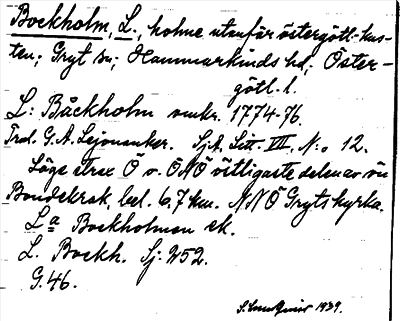 Bockholm, L., holme utanför östergötl.-kus-
ten; Gryt sn; Hammarkinds hd; Öster-
götl. l.
L: Båckholm omkr. 1774-76.
Trol. G. A. Lejonanker. SjA, Litt. VII, N:o 12.
Läge strax Ö o. ÖNÖ östligaste delen av ön
Bondekrok, bel. 6,7 km. NNÖ Gryts kyrka.
La Bockholmen ek.
L. Bockh. Sj: 252.
G. 46.
1939.